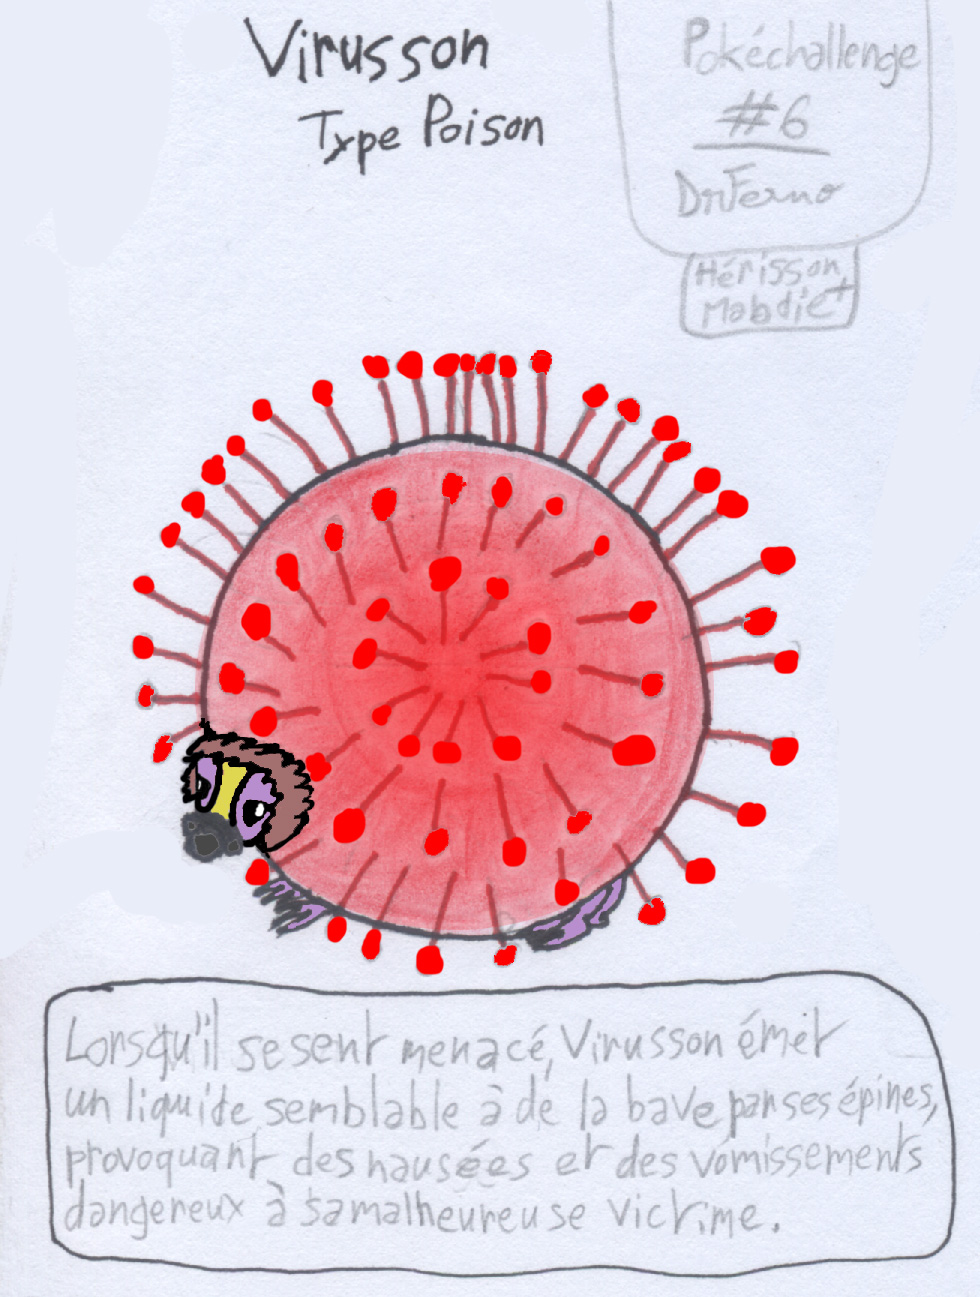 Virusson
Type Poison
Pokéchallenge
#6
DrFerno
Hérisson
+
Mabdie
Lorsqu'il se sent menacé, Virusson émet
un liquide semblable à de la bave par ses épines,
provoquant des nausées et des vomissements
dangereux à sa malheureuse victime.